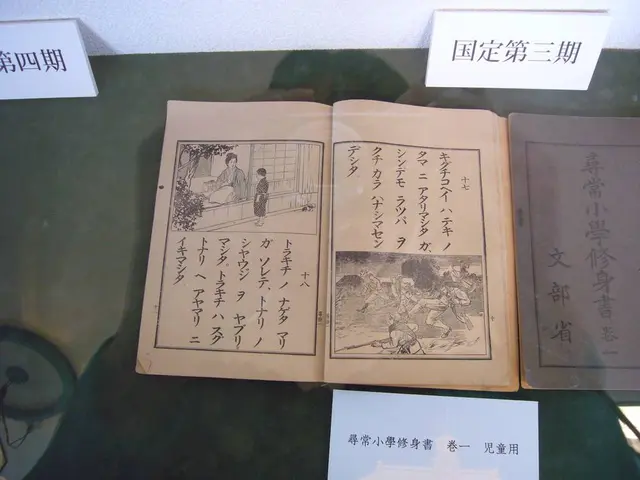 第四期
国定第三期
十七
キグチコヘイ ハ テキ ノ
タマ ニ アタリマシタ ガ、
シンデモ ラツパ ヲ
クチ カラ ハナシマセン
デシタ
十八
トラキチ ノ ナゲタ マリ
ガ ソレテ、トナリ ノ
シヤウジ ヲ ヤブリ
マシタ。トラキチ ハ スグ
トナリ ヘ アヤマリ ニ
イキマシタ
尋常小學修身書 巻一
文部省
尋常小學修身書 巻一 児童用